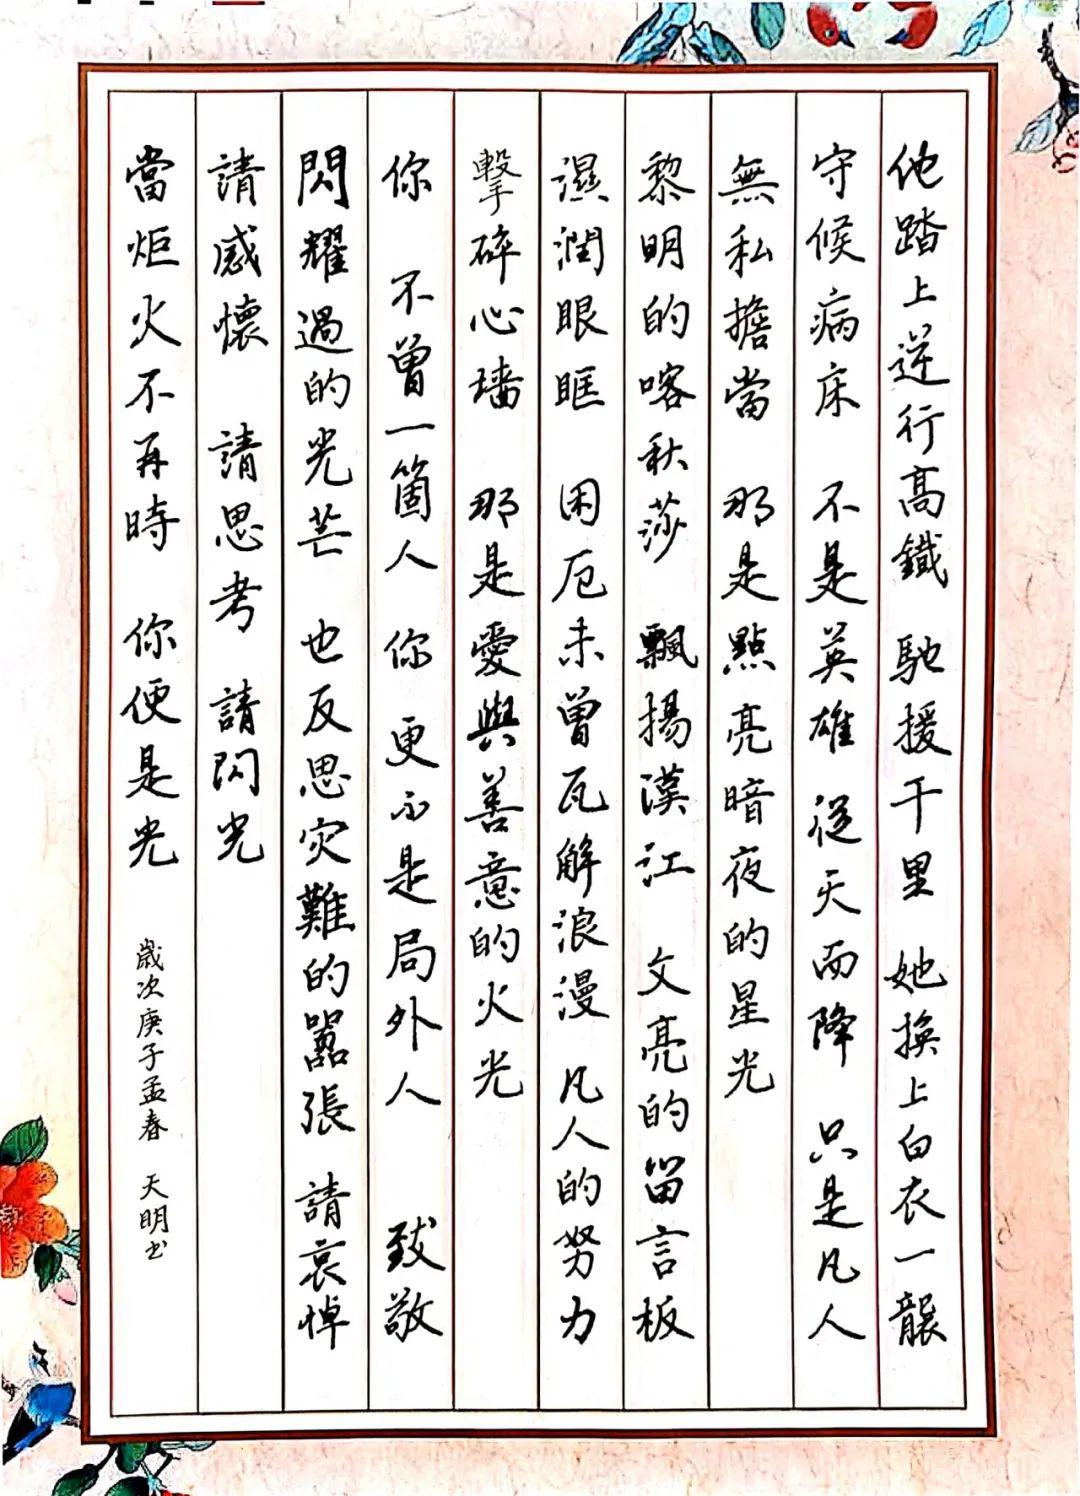 他踏上逆行高鐵 馳援千里 她換上白衣一襲
守候病床 不是英雄 從天而降 只是凡人
無私擔當 那是點亮暗夜的星光
黎明的喀秋莎 飄揚漢江 文亮的留言板
濕潤眼眶 困厄未曾瓦解浪漫 凡人的努力
擊碎心墻 那是愛與善意的火光
你 不曾一箇人 你 更不是局外人 致敬
閃耀過的光芒 也反思灾難的囂張 請哀悼
請感懷 請思考 請閃光
當炬火不再時 你便是光
歲次庚子孟春 天明书